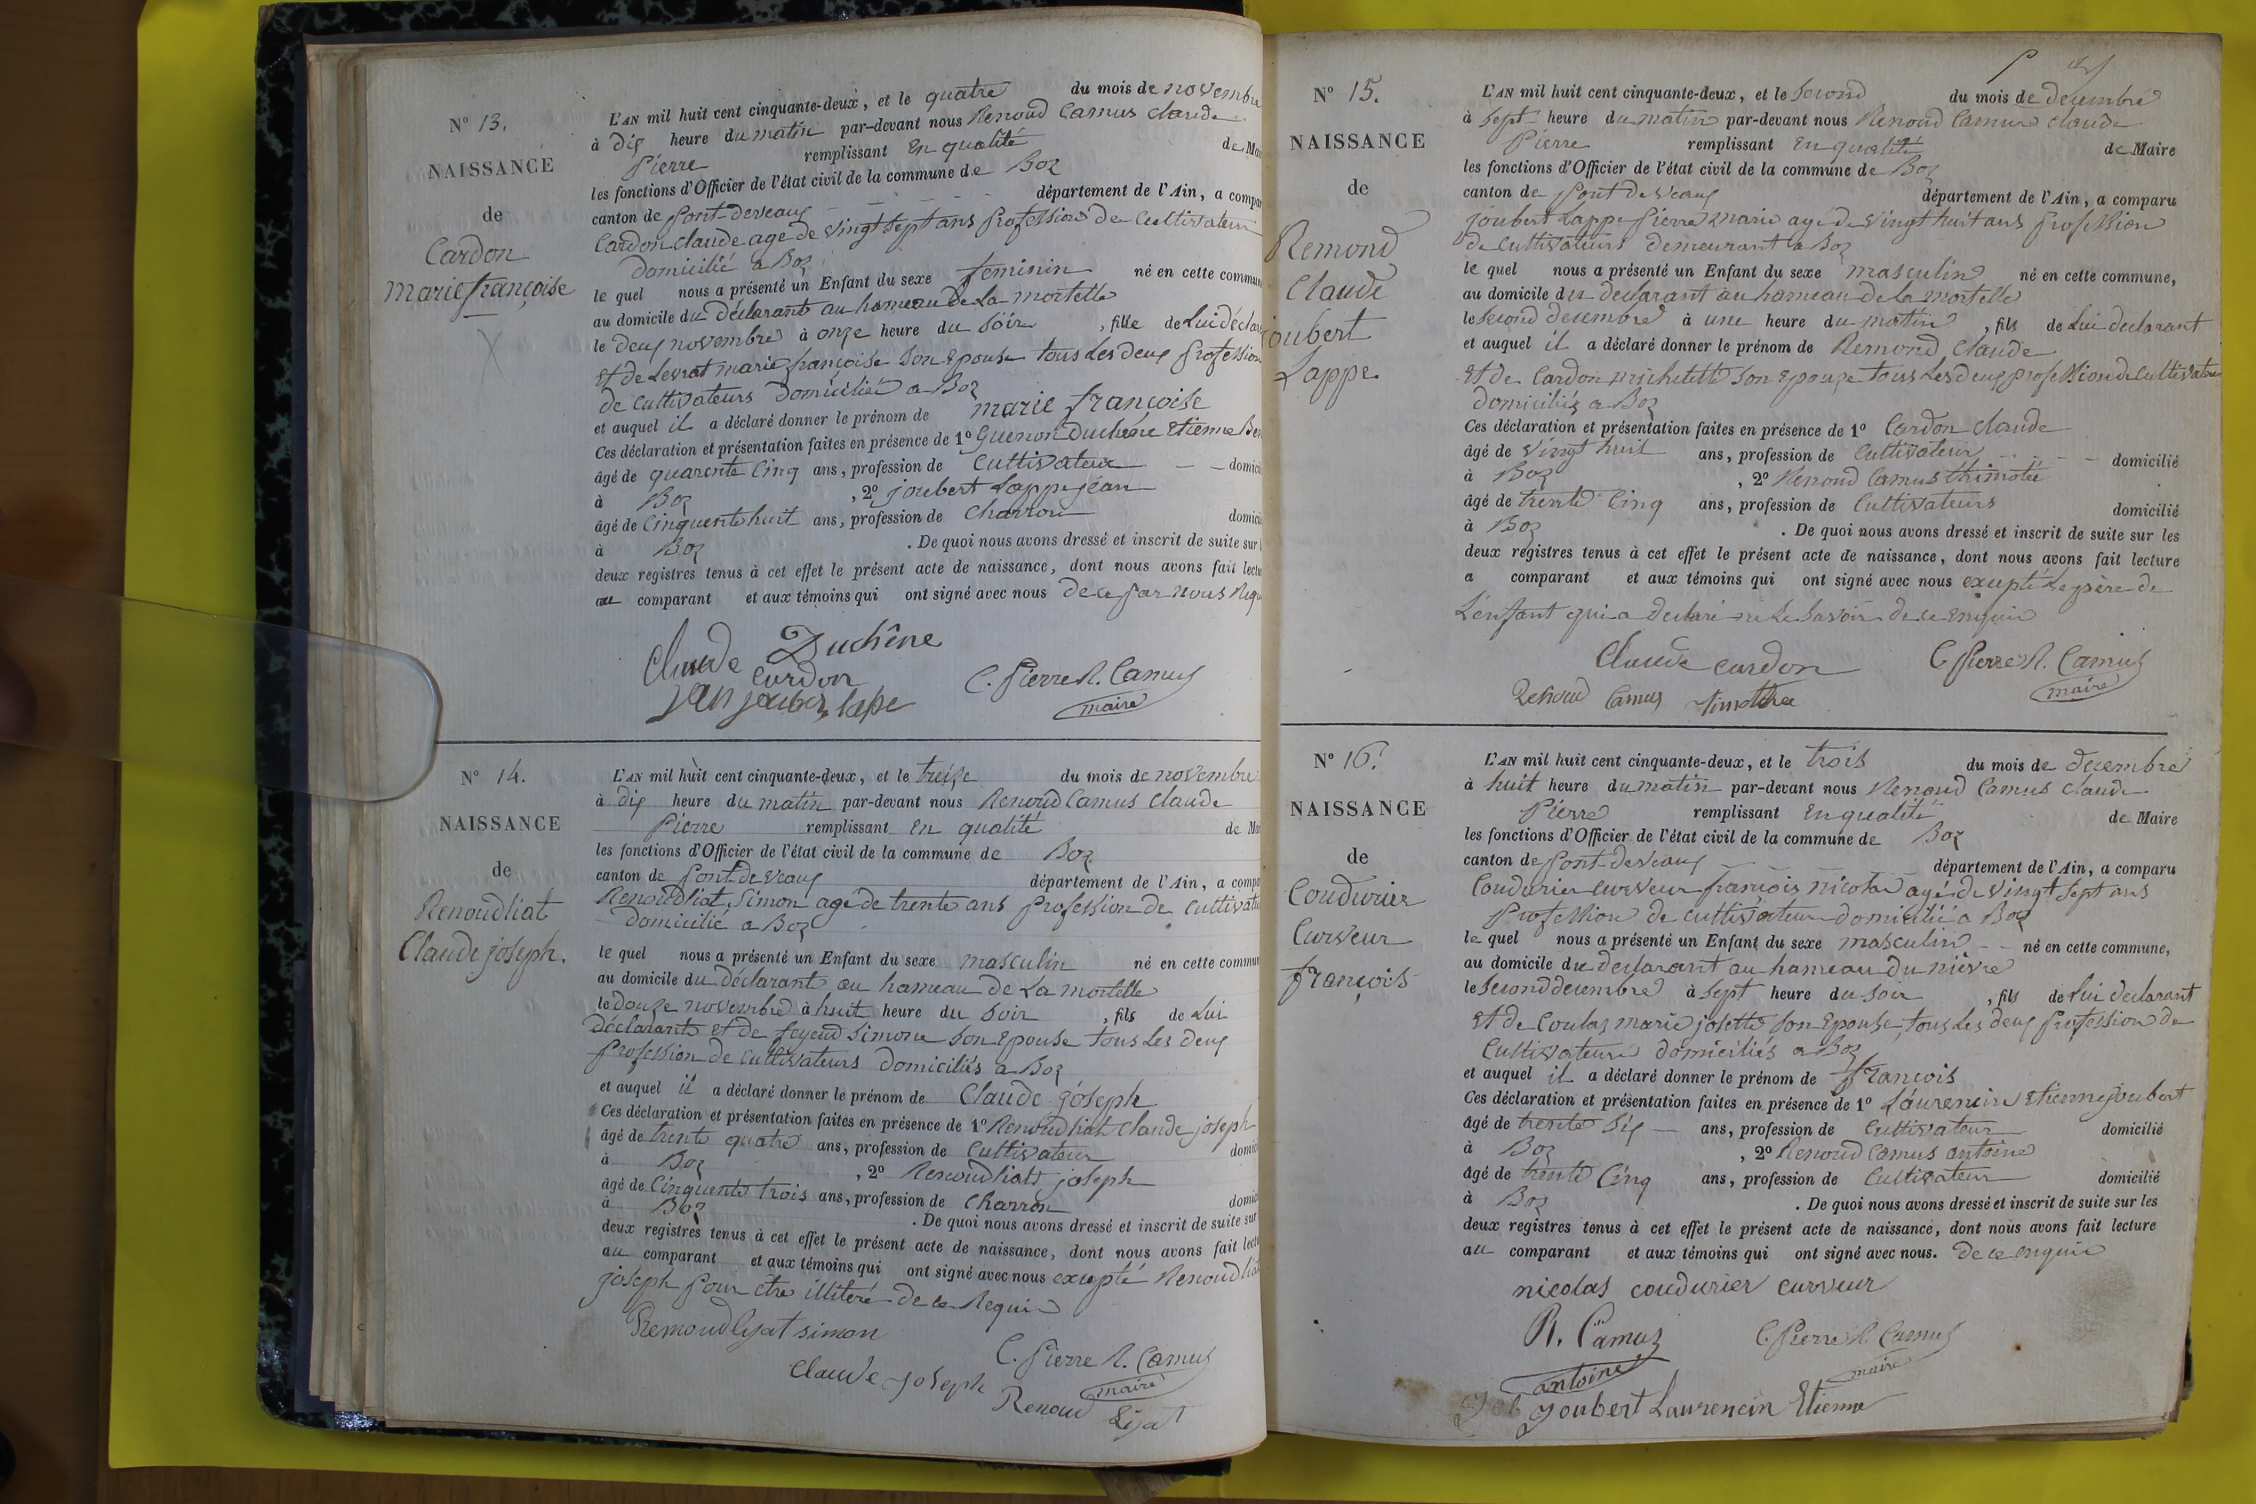 N° 13.
NAISSANCE
de
Cardon
marie françoise
L'AN mil huit cent cinquante-deux, et le quatre du mois de novembre
à dix heure du matin par-devant nous Renoud Camus Claude
Pierre remplissant En qualité de Mai
les fonctions d'Officier de l'état civil de la commune de Boz
canton de Pont-deveaux département de l'Ain, a compar
Cardon claude age de vingt Sept ans Profession de Cultivateur
domicilié a Boz
le quel nous a présenté un Enfant du sexe feminin né en cette commune
au domicile du déclarant au hameau de La mortelle
le deux novembre à onze heure du Soir , fille de Lui déclar
et de Levrat marie françoise Son Epouse tous Les deux Profession
de cultivateurs Domicilié a Boz
et auquel il a déclaré donner le prénom de marie françoise
Ces déclaration et présentation faites en présence de 1° Guenon Duchêne Etienne Ben
âgé de quarente Cinq ans, profession de Cultivateur domici
à Boz , 2° joubert Lappe jean
âgé de Cinquente huit ans, profession de Charron domici
à Boz . De quoi nous avons dressé et inscrit de suite sur l
deux registres tenus à cet effet le présent acte de naissance, dont nous avons fait lectu
au comparant et aux témoins qui ont signé avec nous de ce Par nous Requ
Claude Duchêne
Cardon
jan jouber lape C. Pierre R. Camus
maire
N° 14.
NAISSANCE
de
Renoud liat
Claude joseph.
L'AN mil huit cent cinquante-deux, et le treize du mois de novembre
à dix heure du matin par-devant nous Renoud Camus Claude
Pierre remplissant En qualité de Mai
les fonctions d'Officier de l'état civil de la commune de Boz
canton de Pont-de veaux département de l'Ain, a compa
Renoud liat Simon age de trente ans Profession de Cultivate
domicilié a Boz
le quel nous a présenté un Enfant du sexe masculin né en cette commun
au domicile du déclarant au hameau de La mortelle
le Douze novembre à huit heure du Soir , fils de Lui
déclarant et de feyeud Simone Son Epouse tous Les deux
Profession de cultivateurs domiciliés a Boz
et auquel il a déclaré donner le prénom de Claude joseph
Ces déclaration et présentation faites en présence de 1° Renoud liat Claude joseph
âgé de trente quatre ans, profession de Cultivateur domici
à Boz , 2° Renoud liat joseph
âgé de Cinquente trois ans, profession de Charron domici
à Boz . De quoi nous avons dressé et inscrit de suite sur
deux registres tenus à cet effet le présent acte de naissance, dont nous avons fait lectu
au comparant et aux témoins qui ont signé avec nous excepté Renoud lia
joseph Pour etre illiteré de ce Requis
Remoud lyat simon
C. Pierre R. Camus
maire
Claude joseph
Renoud Liat
N° 15.
NAISSANCE
de
Remond
Claude
joubert
Lappe
L'AN mil huit cent cinquante-deux, et le Second du mois de decembre
à Sept heure du matin par-devant nous Renoud Camus Claude
Pierre remplissant En qualité de Maire
les fonctions d'Officier de l'état civil de la commune de Boz
canton de Pont de veaux département de l'Ain, a comparu
joubert Lappe Pierre marie agé de vingt huit ans Profession
de cultivateurs demeurant a Boz
le quel nous a présenté un Enfant du sexe masculin né en cette commune,
au domicile du declarant au hameau de la mortelle
le Second decembre à une heure du matin , fils de Lui declarant
et auquel il a déclaré donner le prénom de Remond Claude
Et de Cardon michelette Son Epouze tous Les deux profession de Cultivateur
domiciliés a Boz
Ces déclaration et présentation faites en présence de 1° Cardon claude
âgé de vingt huit ans, profession de Cultivateur domicilié
à Boz , 2° Renoud Camus thimotée
âgé de trente Cinq ans, profession de Cultivateurs domicilié
à Boz . De quoi nous avons dressé et inscrit de suite sur les
deux registres tenus à cet effet le présent acte de naissance, dont nous avons fait lecture
a comparant et aux témoins qui ont signé avec nous excepté Le père de
L'enfant qui a declaré ne Le Savoir de ce enquis
Claude cardon C Pierre R. Camus
maire
Renoud Camus timothee
N° 16.
NAISSANCE
de
Coudurier
Curveur
françois
L'AN mil huit cent cinquante-deux, et le trois du mois de decembre
à huit heure du matin par-devant nous Renoud Camus Claude
Pierre remplissant En qualité de Maire
les fonctions d'Officier de l'état civil de la commune de Boz
canton de Pont-deveaux département de l'Ain, a comparu
Coudurier curveur françois nicolas agé de vingt Sept ans
Profession de cultivateur domicilié a Boz
le quel nous a présenté un Enfant du sexe masculin né en cette commune,
au domicile du declarant au hameau du nièvre
le Second decembre à Sept heure du Soir , fils de Lui declarant
Et de Coulas marie josette Son Epouse, tous Les deux Profession de
Cultivateurs domiciliés a Boz
et auquel il a déclaré donner le prénom de françois
Ces déclaration et présentation faites en présence de 1° Laurencin Etienne joubert
âgé de trente Six ans, profession de Cultivateur domicilié
à Boz , 2° Renoud Camus antoine
âgé de trente Cinq ans, profession de Cultivateur domicilié
à Boz . De quoi nous avons dressé et inscrit de suite sur les
deux registres tenus à cet effet le présent acte de naissance, dont nous avons fait lecture
au comparant et aux témoins qui ont signé avec nous. de ce enquis
nicolas coudurier curveur
R. Camus C. Pierre R. Camus
antoine maire
Joubert Laurencin Etienne